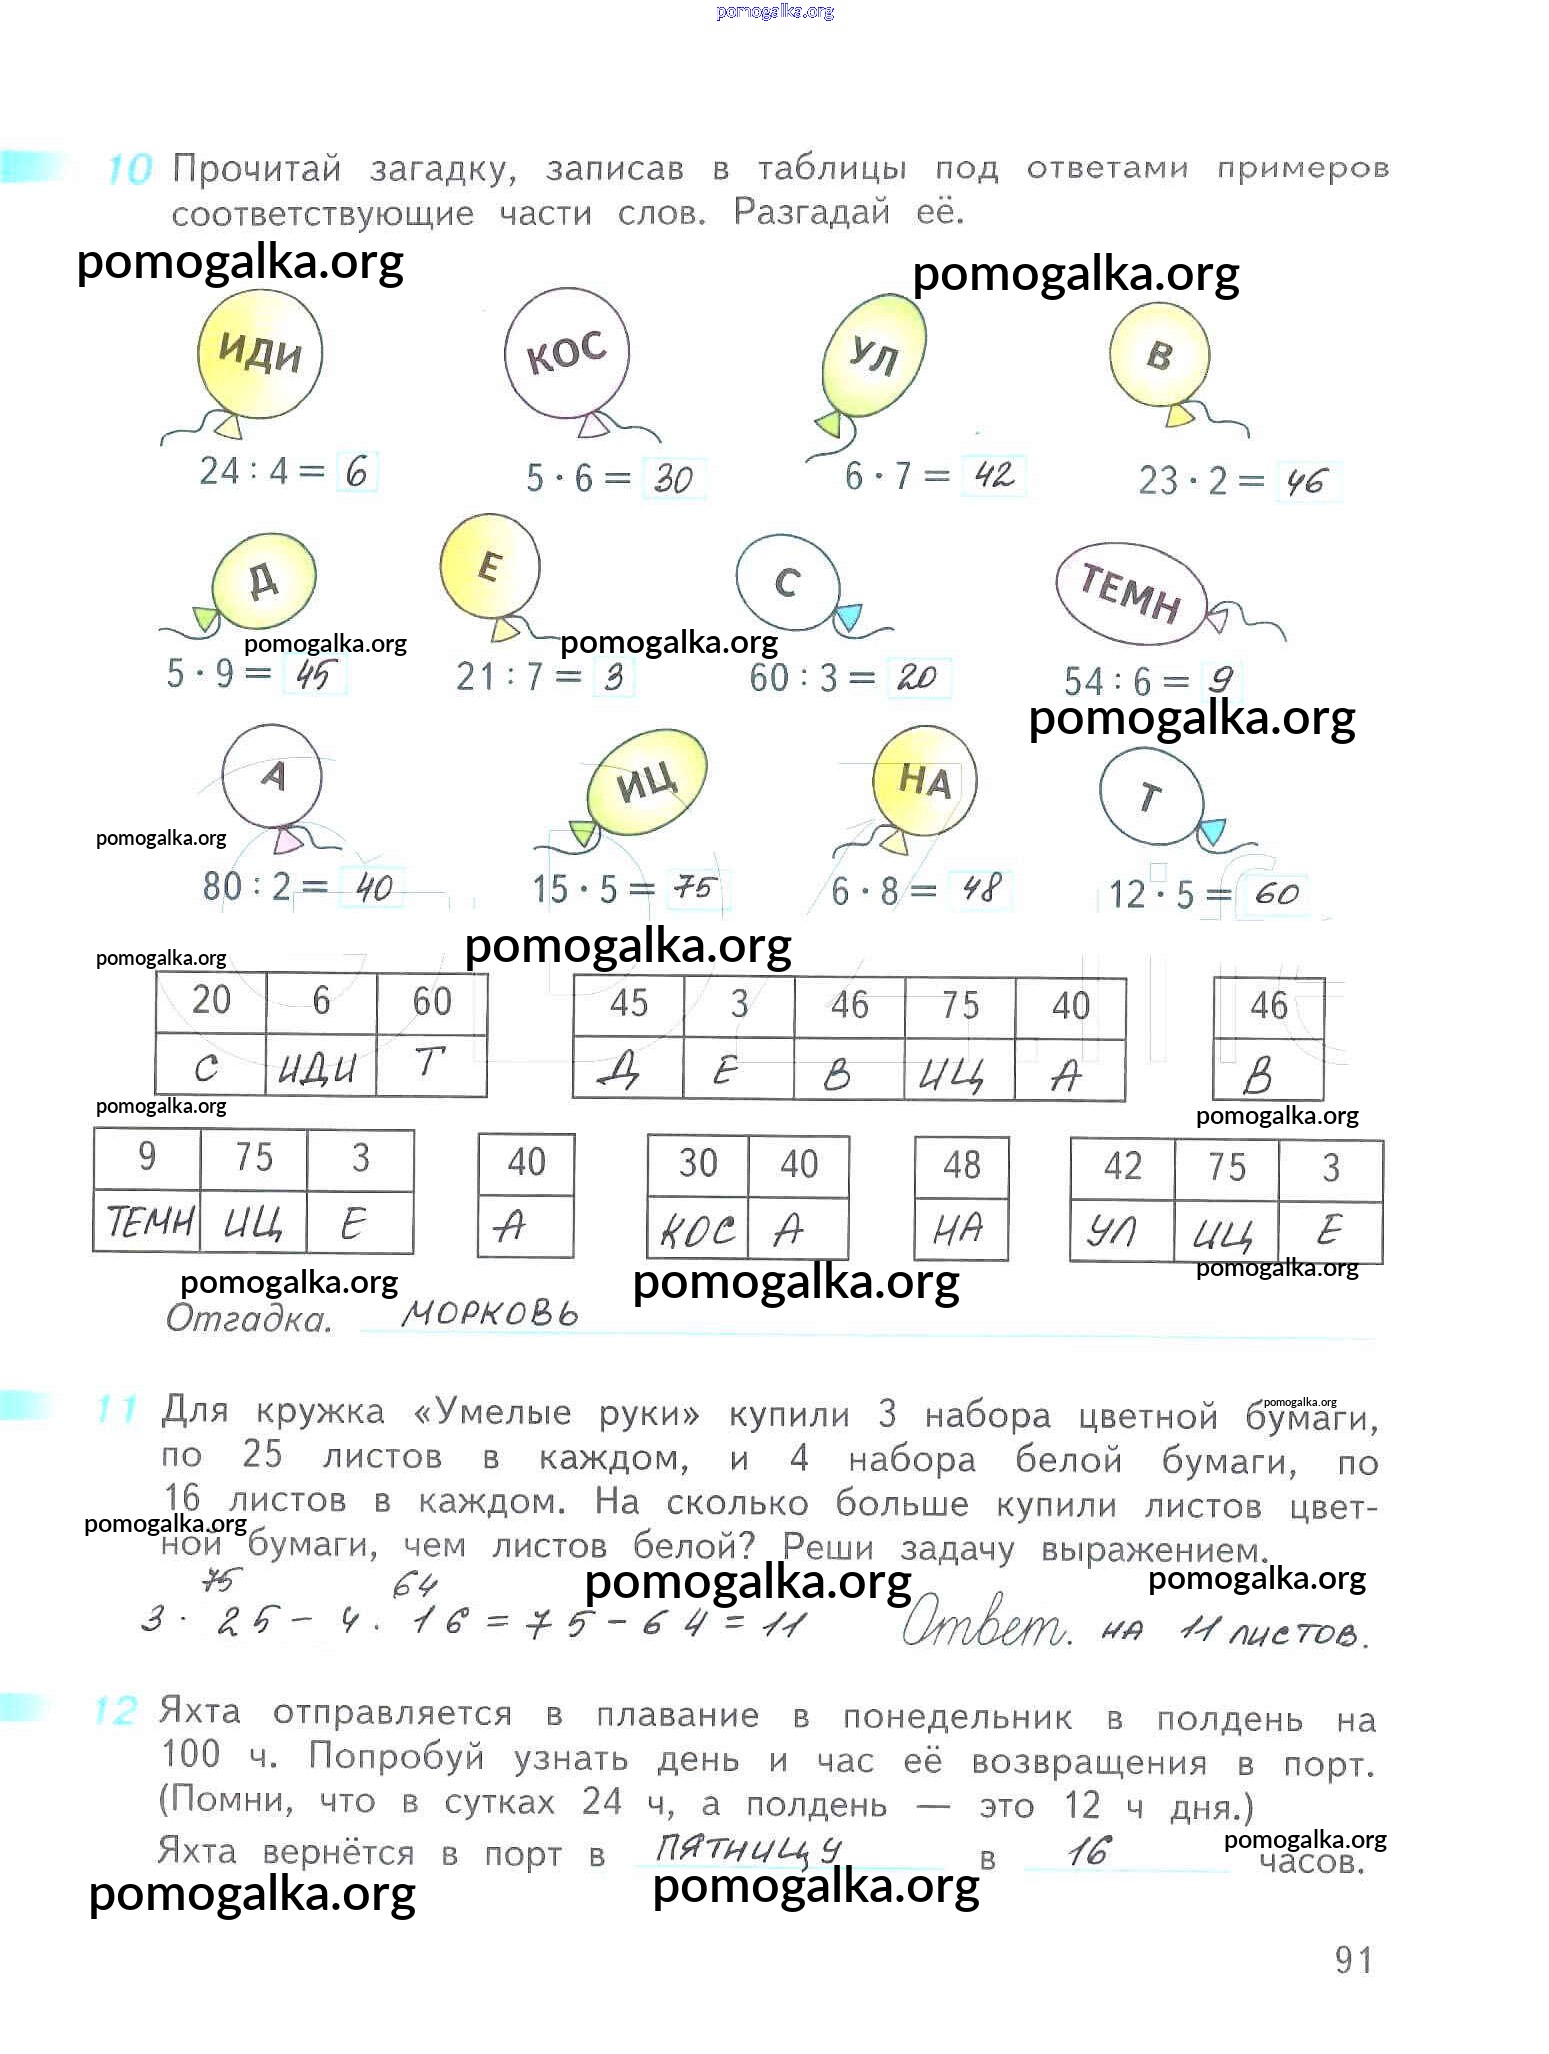 pomogalka.org
10 Прочитай загадку, записав в таблицы под ответами примеров
соответствующие части слов. Разгадай её.
pomogalka.org pomogalka.org
ИДИ КОС УЛ В
24 : 4 = 6 5 · 6 = 30 6 · 7 = 42 23 · 2 = 46
Д Е С ТЕМН
pomogalka.org pomogalka.org
5 · 9 = 45 21 : 7 = 3 60 : 3 = 20 54 : 6 = 9
pomogalka.org
А ИЦ НА Т
pomogalka.org
80 : 2 = 40 15 · 5 = 75 6 · 8 = 48 12 · 5 = 60
pomogalka.org
pomogalka.org
20 6 60 45 3 46 75 40 46
С ИДИ Т Д Е В ИЦ А В
pomogalka.org pomogalka.org
9 75 3 40 30 40 48 42 75 3
ТЕМН ИЦ Е А КОС А НА УЛ ИЦ Е
pomogalka.org pomogalka.org pomogalka.org
Отгадка. МОРКОВЬ
pomogalka.org
11 Для кружка «Умелые руки» купили 3 набора цветной бумаги,
по 25 листов в каждом, и 4 набора белой бумаги, по
16 листов в каждом. На сколько больше купили листов цвет-
pomogalka.org
ной бумаги, чем листов белой? Реши задачу выражением.
75 64 pomogalka.org pomogalka.org
3 · 25 − 4 · 16 = 75 − 64 = 11 Ответ. на 11 листов.
12 Яхта отправляется в плавание в понедельник в полдень на
100 ч. Попробуй узнать день и час её возвращения в порт.
(Помни, что в сутках 24 ч, а полдень — это 12 ч дня.)
pomogalka.org
Яхта вернётся в порт в ПЯТНИЦУ в 16 часов.
pomogalka.org pomogalka.org
91